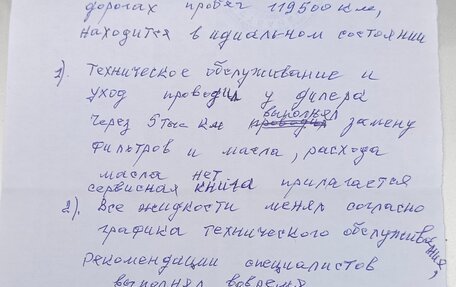 дорогах пробег 119500 км,
находится в идиальном состоянии
1). Техническое обслуживание и
уход проводил у дилера
выполнял
Через 5 тыс км проводил замену
фильтров и масла, расхода
масла нет
сервисная книга прилагается
2). Все жидкости менял согласно
графика технического обслуживания,
рекомендации специалистов
выполнял вовремя